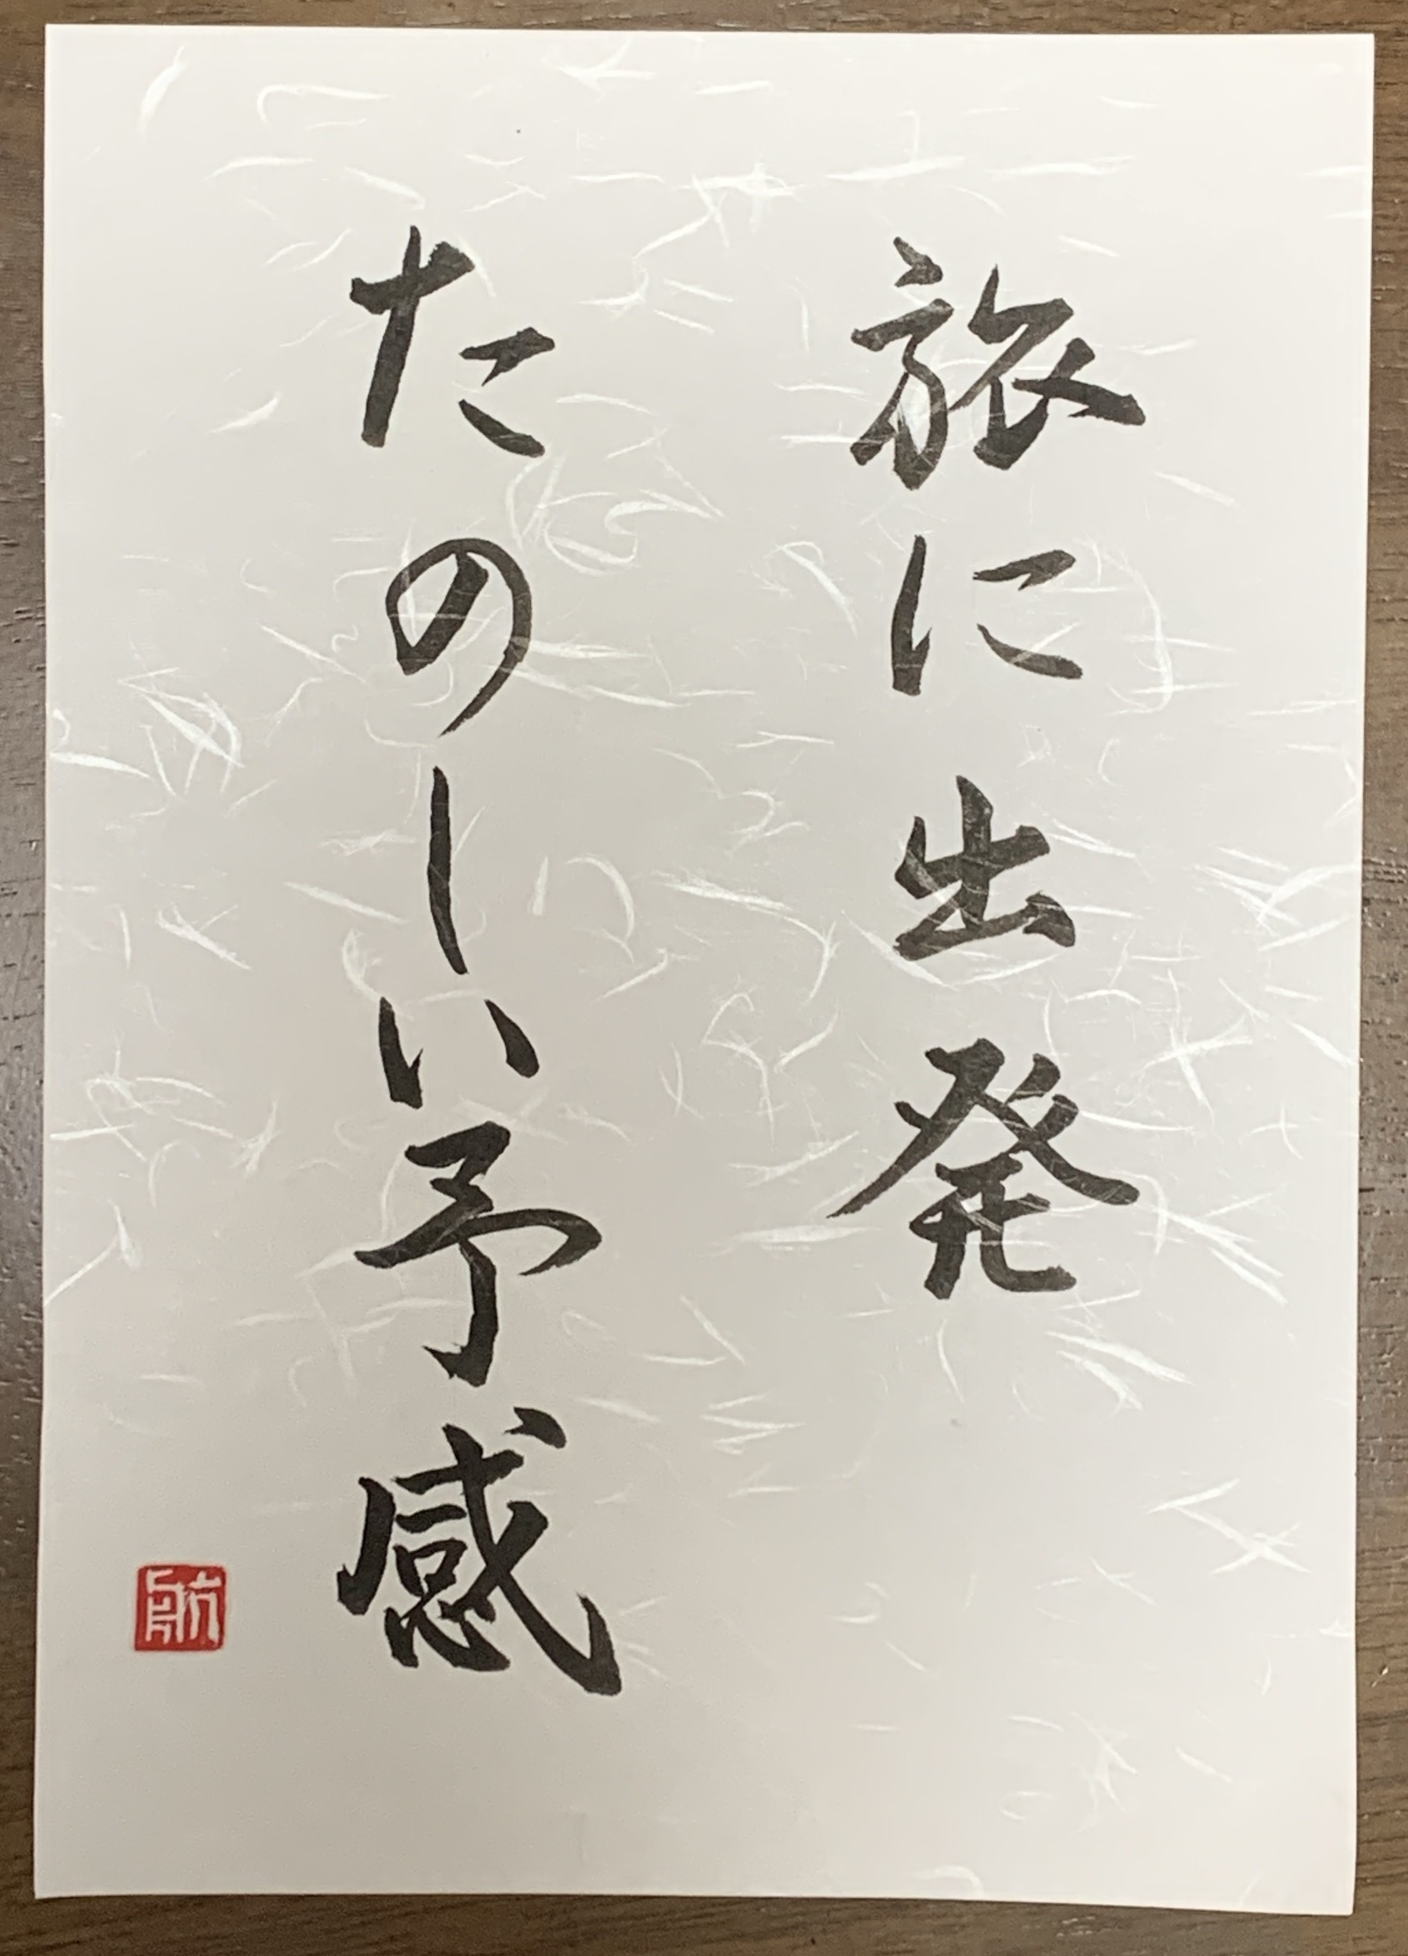 旅に出発
たのしい予感